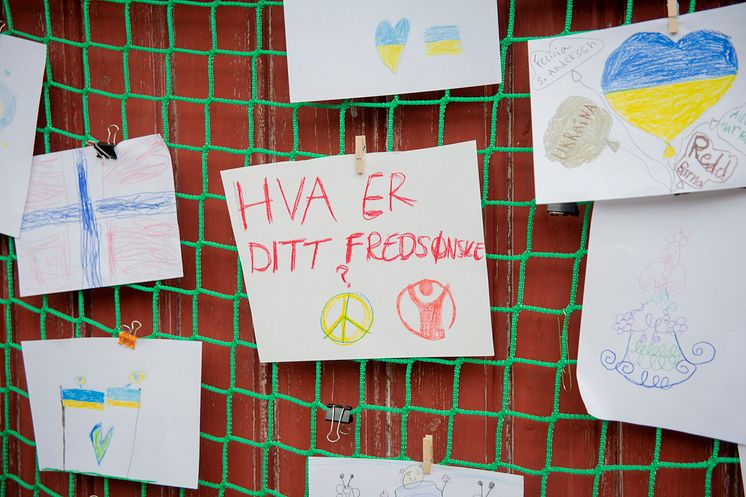 HVA ER
DITT FREDSØNSKE
?
Felicia
S. Andersen
UKRAINA
Redd
Barna!